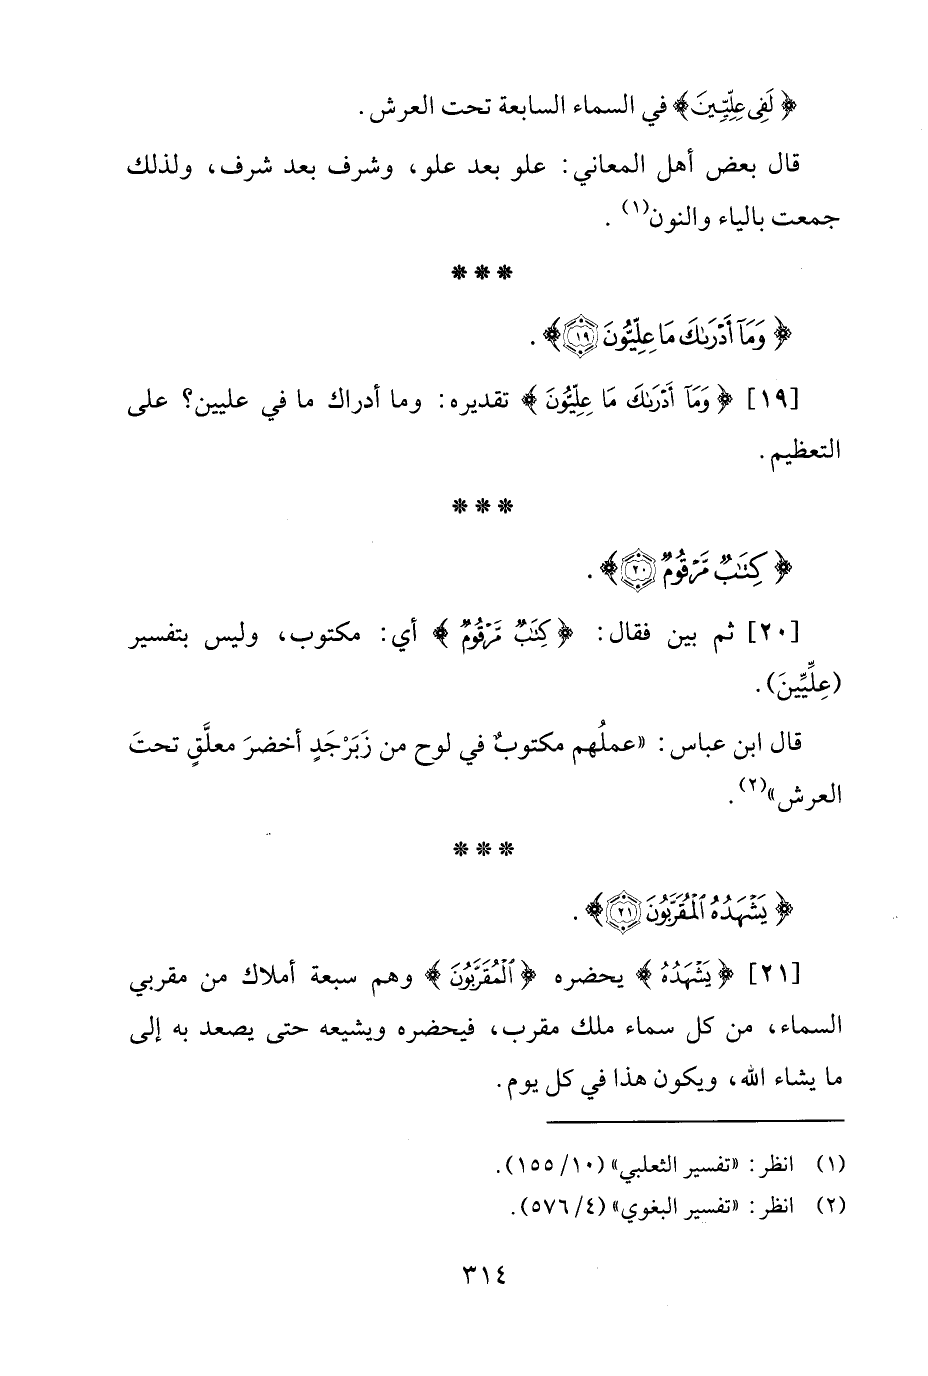 ﴿ لَفِى عِلِّيِّينَ﴾ في السماء السابعة تحت العرش .
قال بعض أهل المعاني : علو بعد علو، وشرف بعد شرف، ولذلك
جمعت بالياء والنون(١) .
***
﴿ وَمَآ أَدْرَىٰكَ مَا عِلِّيُّونَ ١٩﴾ .
[١٩] ﴿ وَمَآ أَدْرَىٰكَ مَا عِلِّيُّونَ ﴾ تقديره: وما أدراك ما في عليين؟ على
التعظيم .
***
﴿ كِتَٰبٌ مَّرْقُومٌ ٢٠﴾ .
[٢٠] ثم بين فقال : ﴿ كِتَٰبٌ مَّرْقُومٌ ﴾ أي: مكتوب، وليس بتفسير
(عِلِّيِّينَ).
قال ابن عباس : «عملُهم مكتوبٌ في لوح من زَبَرْجَدٍ أخضرَ معلَّقٍ تحتَ
العرش»(٢).
***
﴿ يَشْهَدُهُ الْمُقَرَّبُونَ ٢١﴾ .
[٢١] ﴿ يَشْهَدُهُ ﴾ يحضره ﴿ الْمُقَرَّبُونَ ﴾ وهم سبعة أملاك من مقربي
السماء، من كل سماء ملك مقرب، فيحضره ويشيعه حتى يصعد به إلى
ما يشاء الله، ويكون هذا في كل يوم.
(١) انظر : «تفسير الثعلبي» (١٠/ ١٥٥).
(٢) انظر : «تفسير البغوي» (٤/ ٥٧٦).
٣١٤